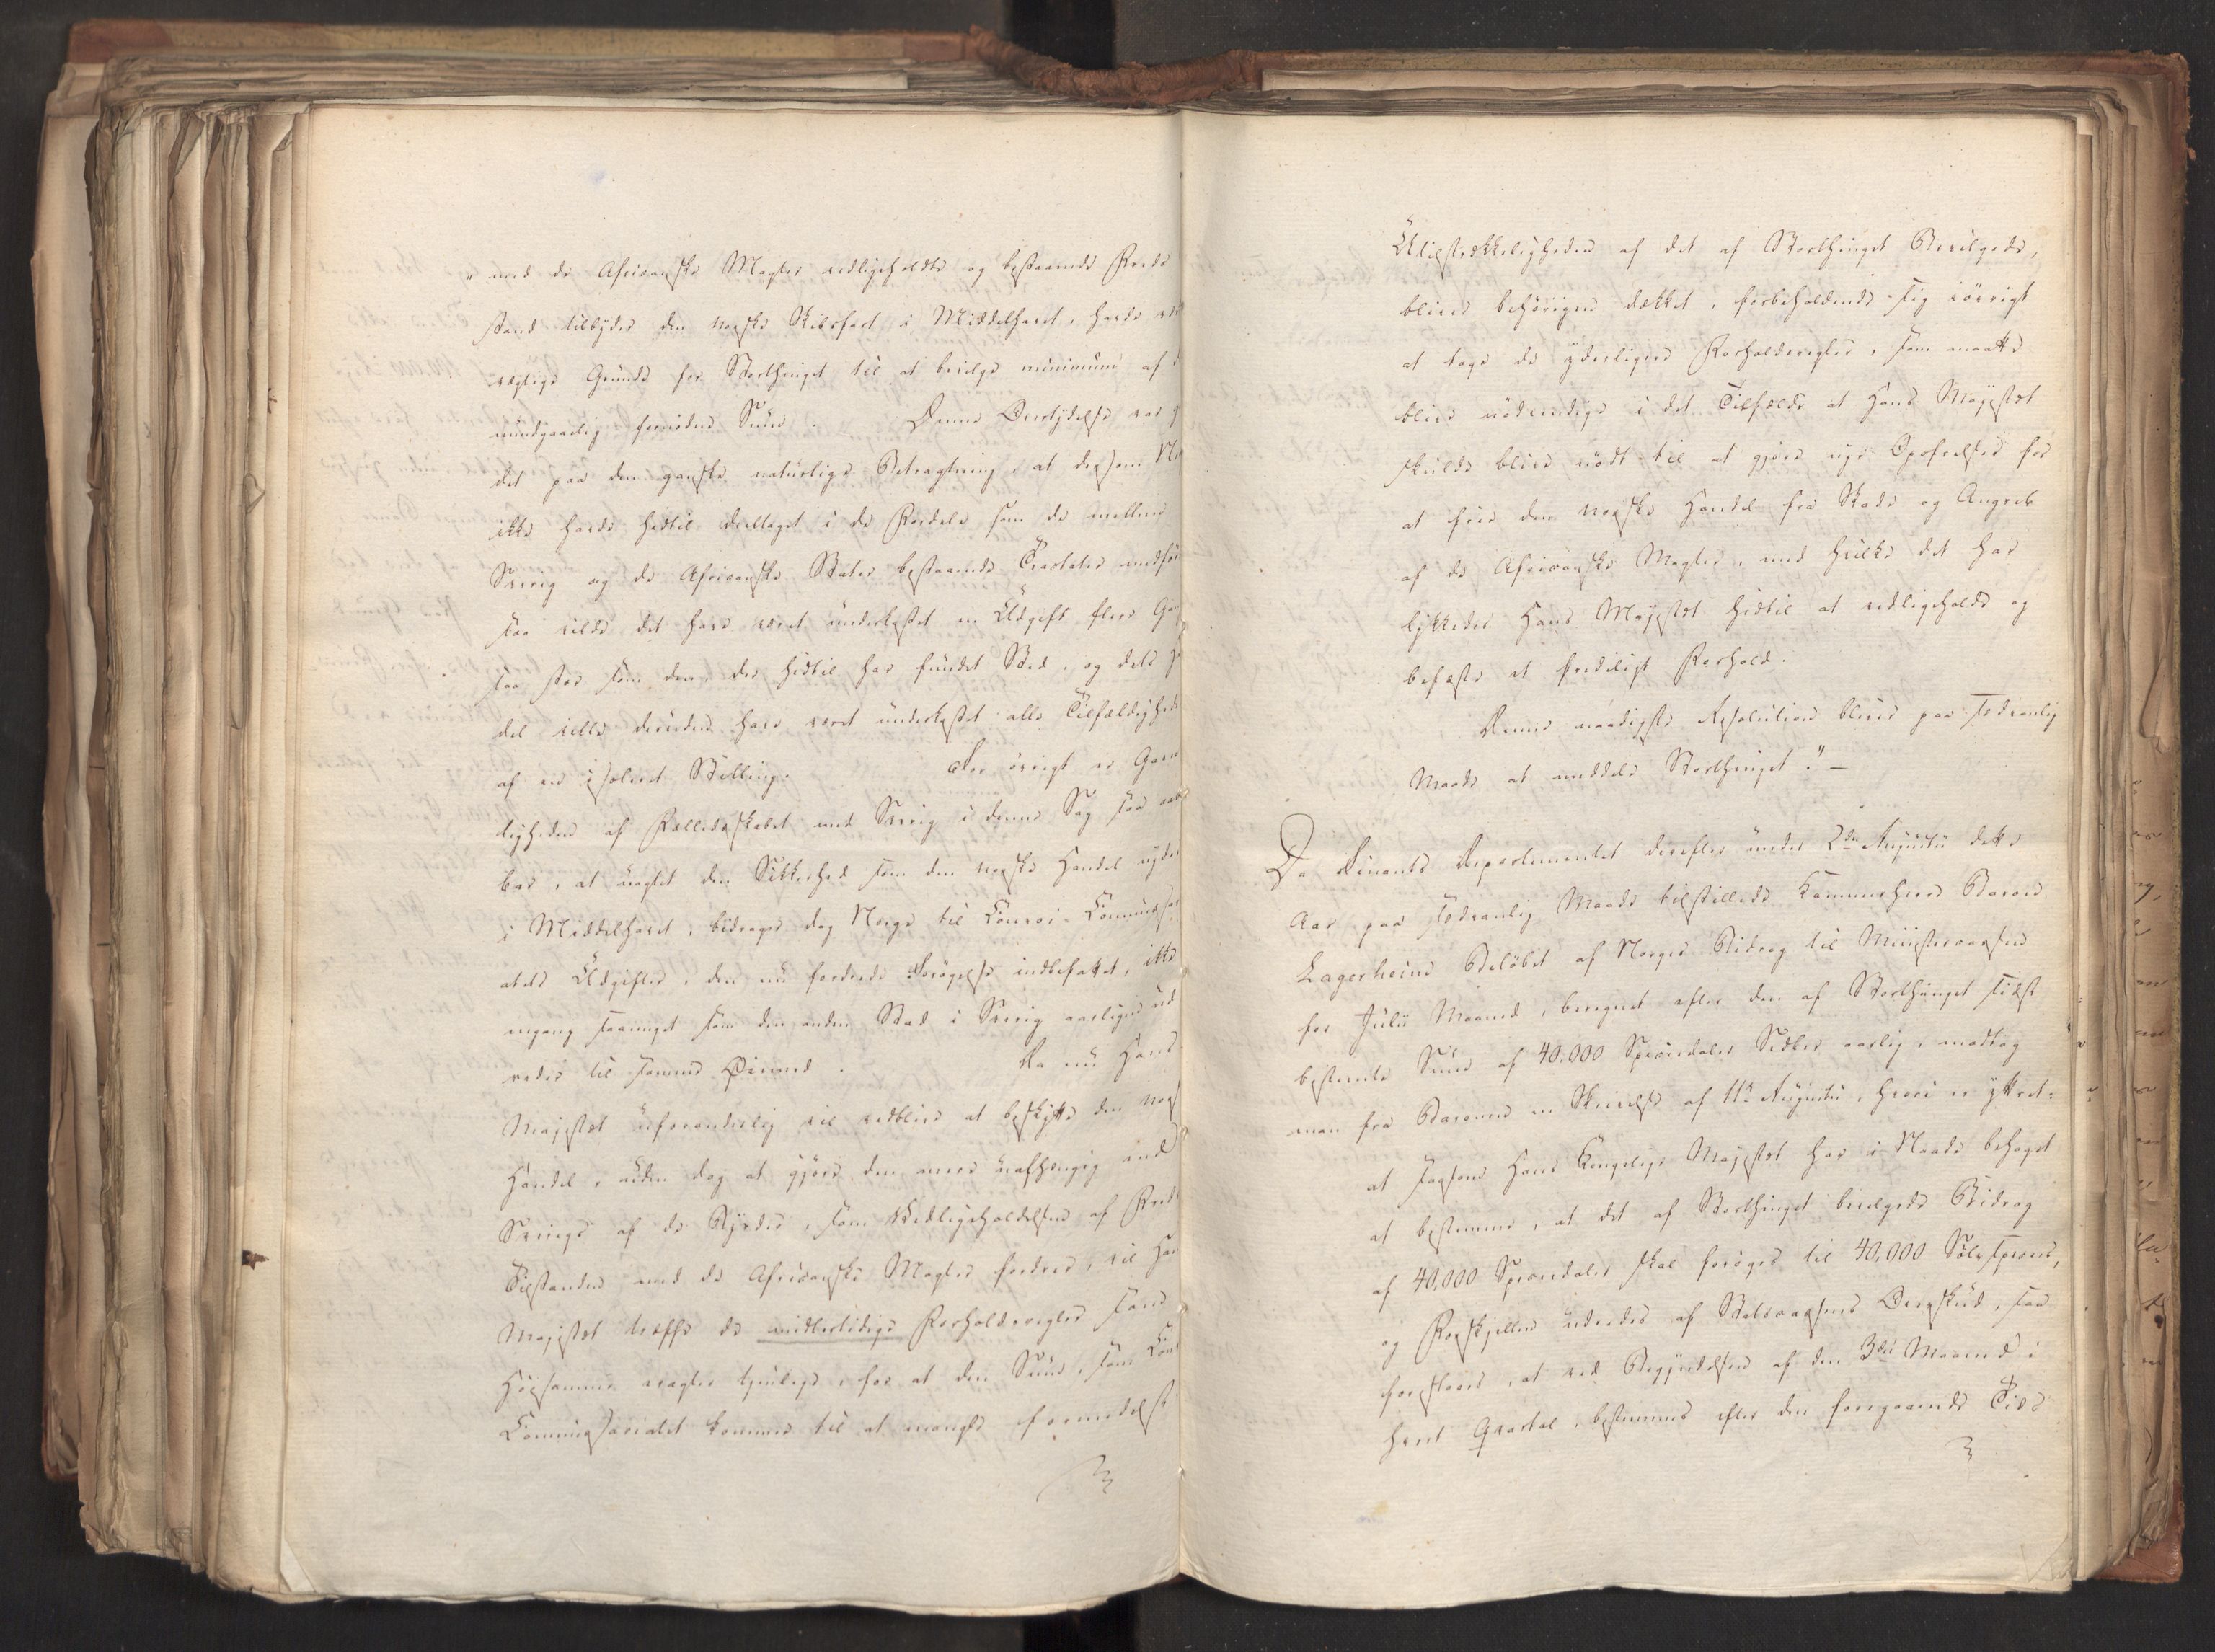 med de Africanske Magter vedligeholdte og bestaaende Freds
stand tilbydes den norske Skibsfart i Middelhavet, havde
vigtige Grunde for Storthinget til at bevilge minimum af
uundgaaelig fornøden Sum. Denne Overtydelse var
det paa den ganske naturlige Betragtning, at dersom
ikke havde hidtil deeltaget i de Fordele som de mellem
Sverig og de Africanske Stater bestaaende Tractater medfør
saa vilde det have været underkastet en Udgift flere
saa stor som den, der hidtil har fundet Sted, og dels
del vilde desuden have været underkastet alle Tilfældighed
af en isoleret Stilling. For øvrigt er
ligheden af Fælledsskabet med Sverig i denne Sag saa
bar, at uagtet den Sikkerhed som den norske Handel nyder
i Middelhavet, bidrager dog Norge til Convoi-Commissari
atets Udgifter, den nu fordrede Forøgelse indbefattet, ikke
engang saameget som den anden Stad i Sverig aarligen ud
reder til samme Øiemed. Da nu Hans
Majestæt uforanderlig vil vedblive at beskytte den norsk
Handel, uden dog at gjøre den mere uafhængig end
Sverigs af de Byrder, som Vedligeholdelsen af Freds
Tilstanden med de Africanske Magter fordrer, vil Han
Majestæt træffe de midlertidige Forholdsregler som
Høysamme agter tjenlige, for at den Sum, som Con
Commissariatet kommer til at mangle formedelst
Utilstrækkeligheden af det af Storthinget Bevilgede,
bliver behørigen dækket, forbeholdende sig iøvrigt
at tage de yderligere Forholdsregler, som maatte
blive nødvendige i det Tilfælde at Hans Majestæt
skulde blive nødt til at gjøre nye Opofrelser for
at frie den norske Handel fra Skade og Angreb
af de Africanske Magter, med hvilke det har
lykkedes Hans Majestæt hidtil at vedligeholde og
befæste et fredeligt Forhold.
Denne naadigste Resolution bliver paa sædvanlig
Maade at meddele Storthinget." —
Da Finants Departementet derefter under 2den Augustii dette
Aar paa sædvanlig Maade tilstillede Kammerherre Baron
Lagerheim Beløbet af Norges Bidrag til Ministervæsenet
for Julii Maaned, beregnet efter den af Storthinget sidst
bestemte Sum af 40.000 Speciedaler Sedler aarlig, modtog
man fra Baronen en Skrivelse af 11te Augustii, hvori er yttret:
at saasom Hans Kongelige Majestæt har i Naade behaget
at bestemme, at det af Storthinget bevilgede Bidrag
af 40,000 Speciedaler skal forøges til 40,000 Sølv Species,
og Forskjellen udredes af Statscassens Overskud, saa
forstaaes, at ved Begyndelsen af den 3die Maaned i
hvert Qvartal, bestemmes efter den foregaaende Tids